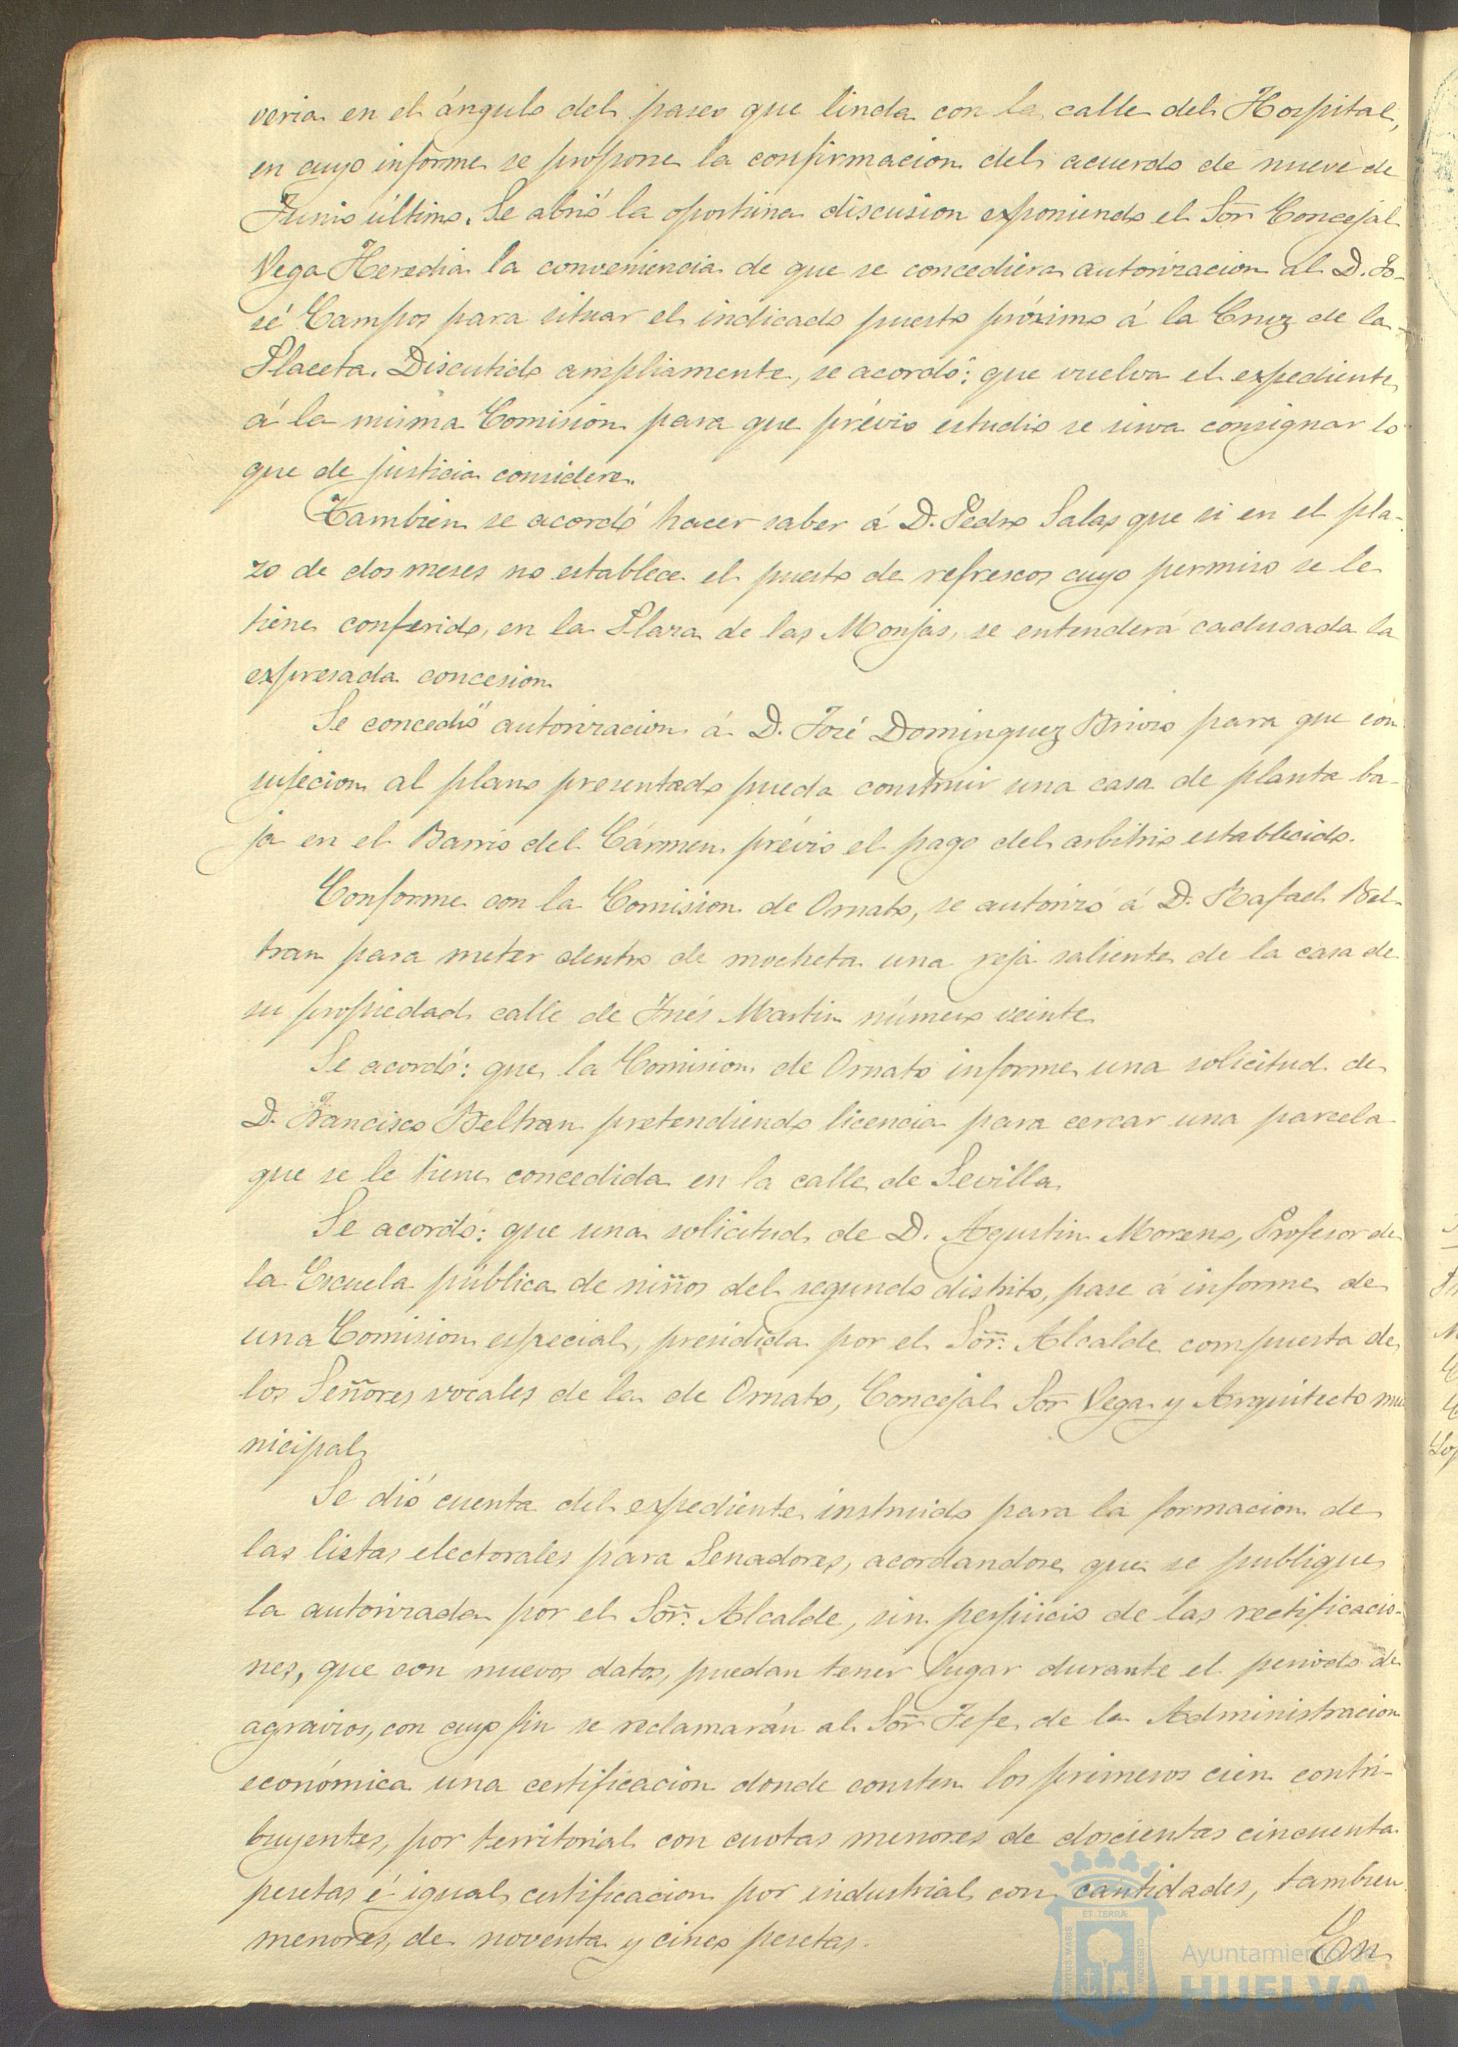 veria en el ángulo del paseo que linda con la calle del Hospital,
en cuyo informe se propone la confirmacion del acuerdo de nueve de
Junio último. Se abrió la oportuna discusion exponiendo el Sor Concejal
Vega Heredia la conveniencia de que se concediera autorizacion al D. Jo-
sé Campos para situar el indicado puesto próximo á la Cruz de la
Placeta. Discutido ampliamente, se acordó: que vuelva el expediente
á la misma Comision para que prévio estudio se sirva consignar lo
que de justicia considere.
Tambien se acordó hacer saber á D. Pedro Salas que si en el pla-
zo de dos meses no establece el puesto de refrescos cuyo permiso se le
tiene conferido, en la Plaza de las Monjas, se entenderá caducada la
expresada concesion.
Se concedió autorizacion á D. José Dominguez para que con
sujecion al plano presentado pueda construir una casa de planta ba-
ja en el Barrio del Cármen, prévio el pago del arbitrio establecido.
Conforme con la Comision de Ornato, se autorizó á D. Rafael Bel-
tran para meter dentro de mocheta una reja saliente de la casa de
su propiedad calle de Inés Martin número veinte.
Se acordó: que la Comision de Ornato informe una solicitud de
D. Francisco Beltran pretendiendo licencia para cercar una parcela
que se le tiene concedida en la calle de Sevilla.
Se acordó: que una solicitud de D. Agustin Moreno, Profesor de
la Escuela pública de niños del segundo distrito, pase á informe de
una Comision especial, presidida por el Sor. Alcalde compuesta de
los Señores vocales de la de Ornato, Concejal Sor Vega y Arquitecto mu
nicipal.
Se dió cuenta del expediente instruido para la formacion de
las listas electorales para Senadores, acordandose que se publique
la autorizada por el Sor. Alcalde, sin perjuicio de las rectificacio-
nes, que con nuevos datos, puedan tener lugar durante el periodo de
agravios, con cuyo fin se reclamarán al Sor Jefe de la Administracion
económica una certificacion donde consten los primeros cien contri-
buyentes, por territorial con cuotas menores de doscientas cincuenta
pesetas é igual certificacion por industrial con cantidades, tambien
menores, de noventa y cinco pesetas.
En
Ayuntamiento de
HUELVA